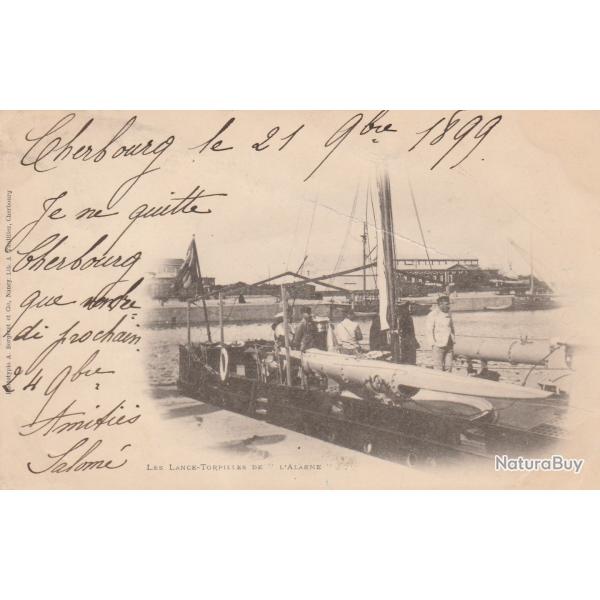 Cherbourg le 21 9bre 1899
Je ne quitte
Cherbourg
que vendre
di prochain
24 9bre
Amitiés
Salomé
Les Lance-Torpilles de " l'Alarme "
A. Bergeret et Cie, Nancy
Cherbourg
NaturaBuy